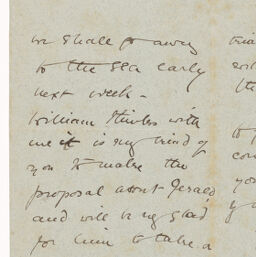 we shall go away
to the sea early
next week –
William thinks with
me it is very kind of
you to make this
proposal about Gerald
and will be very glad
for him to take a
tria
wil
the
to
con
you
y